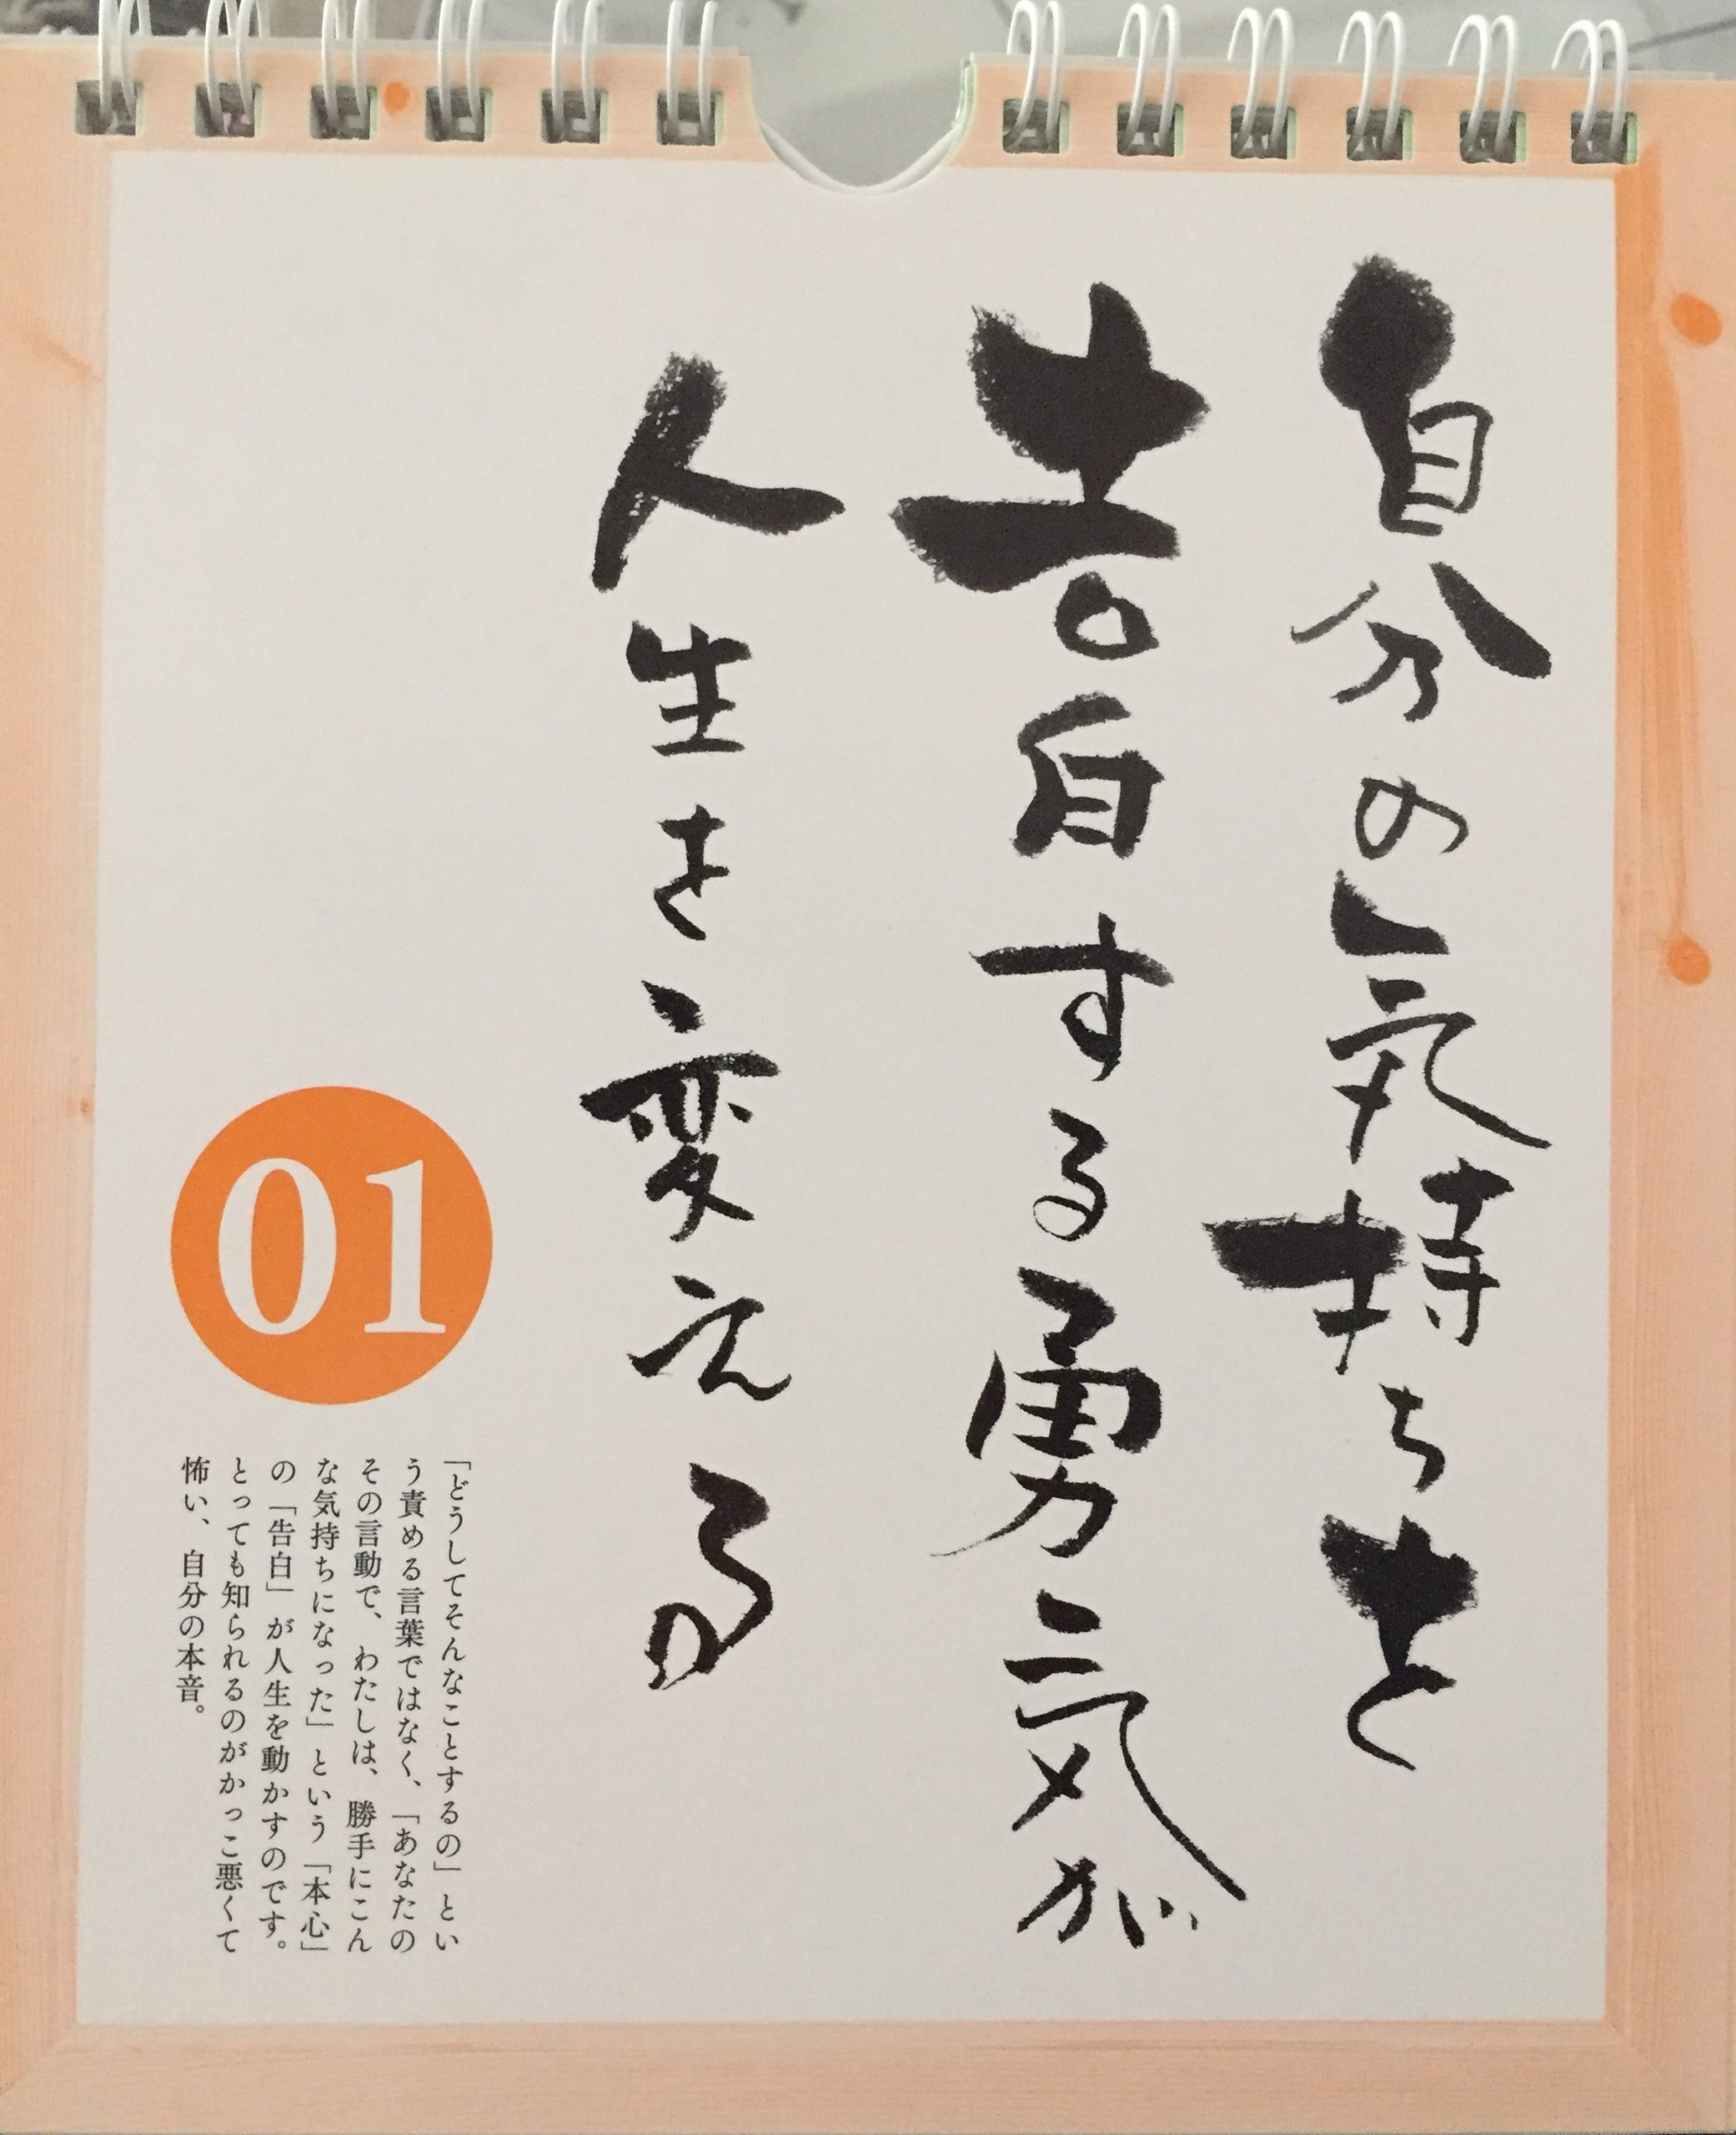 自分の気持ちを
告白する勇気が
人生を変える
01
「どうしてそんなことするの」とい
う責める言葉ではなく、「あなたの
その言動で、わたしは、勝手にこん
な気持ちになった」という「本心」
の「告白」が人生を動かすのです。
とっても知られるのがかっこ悪くて
怖い、自分の本音。